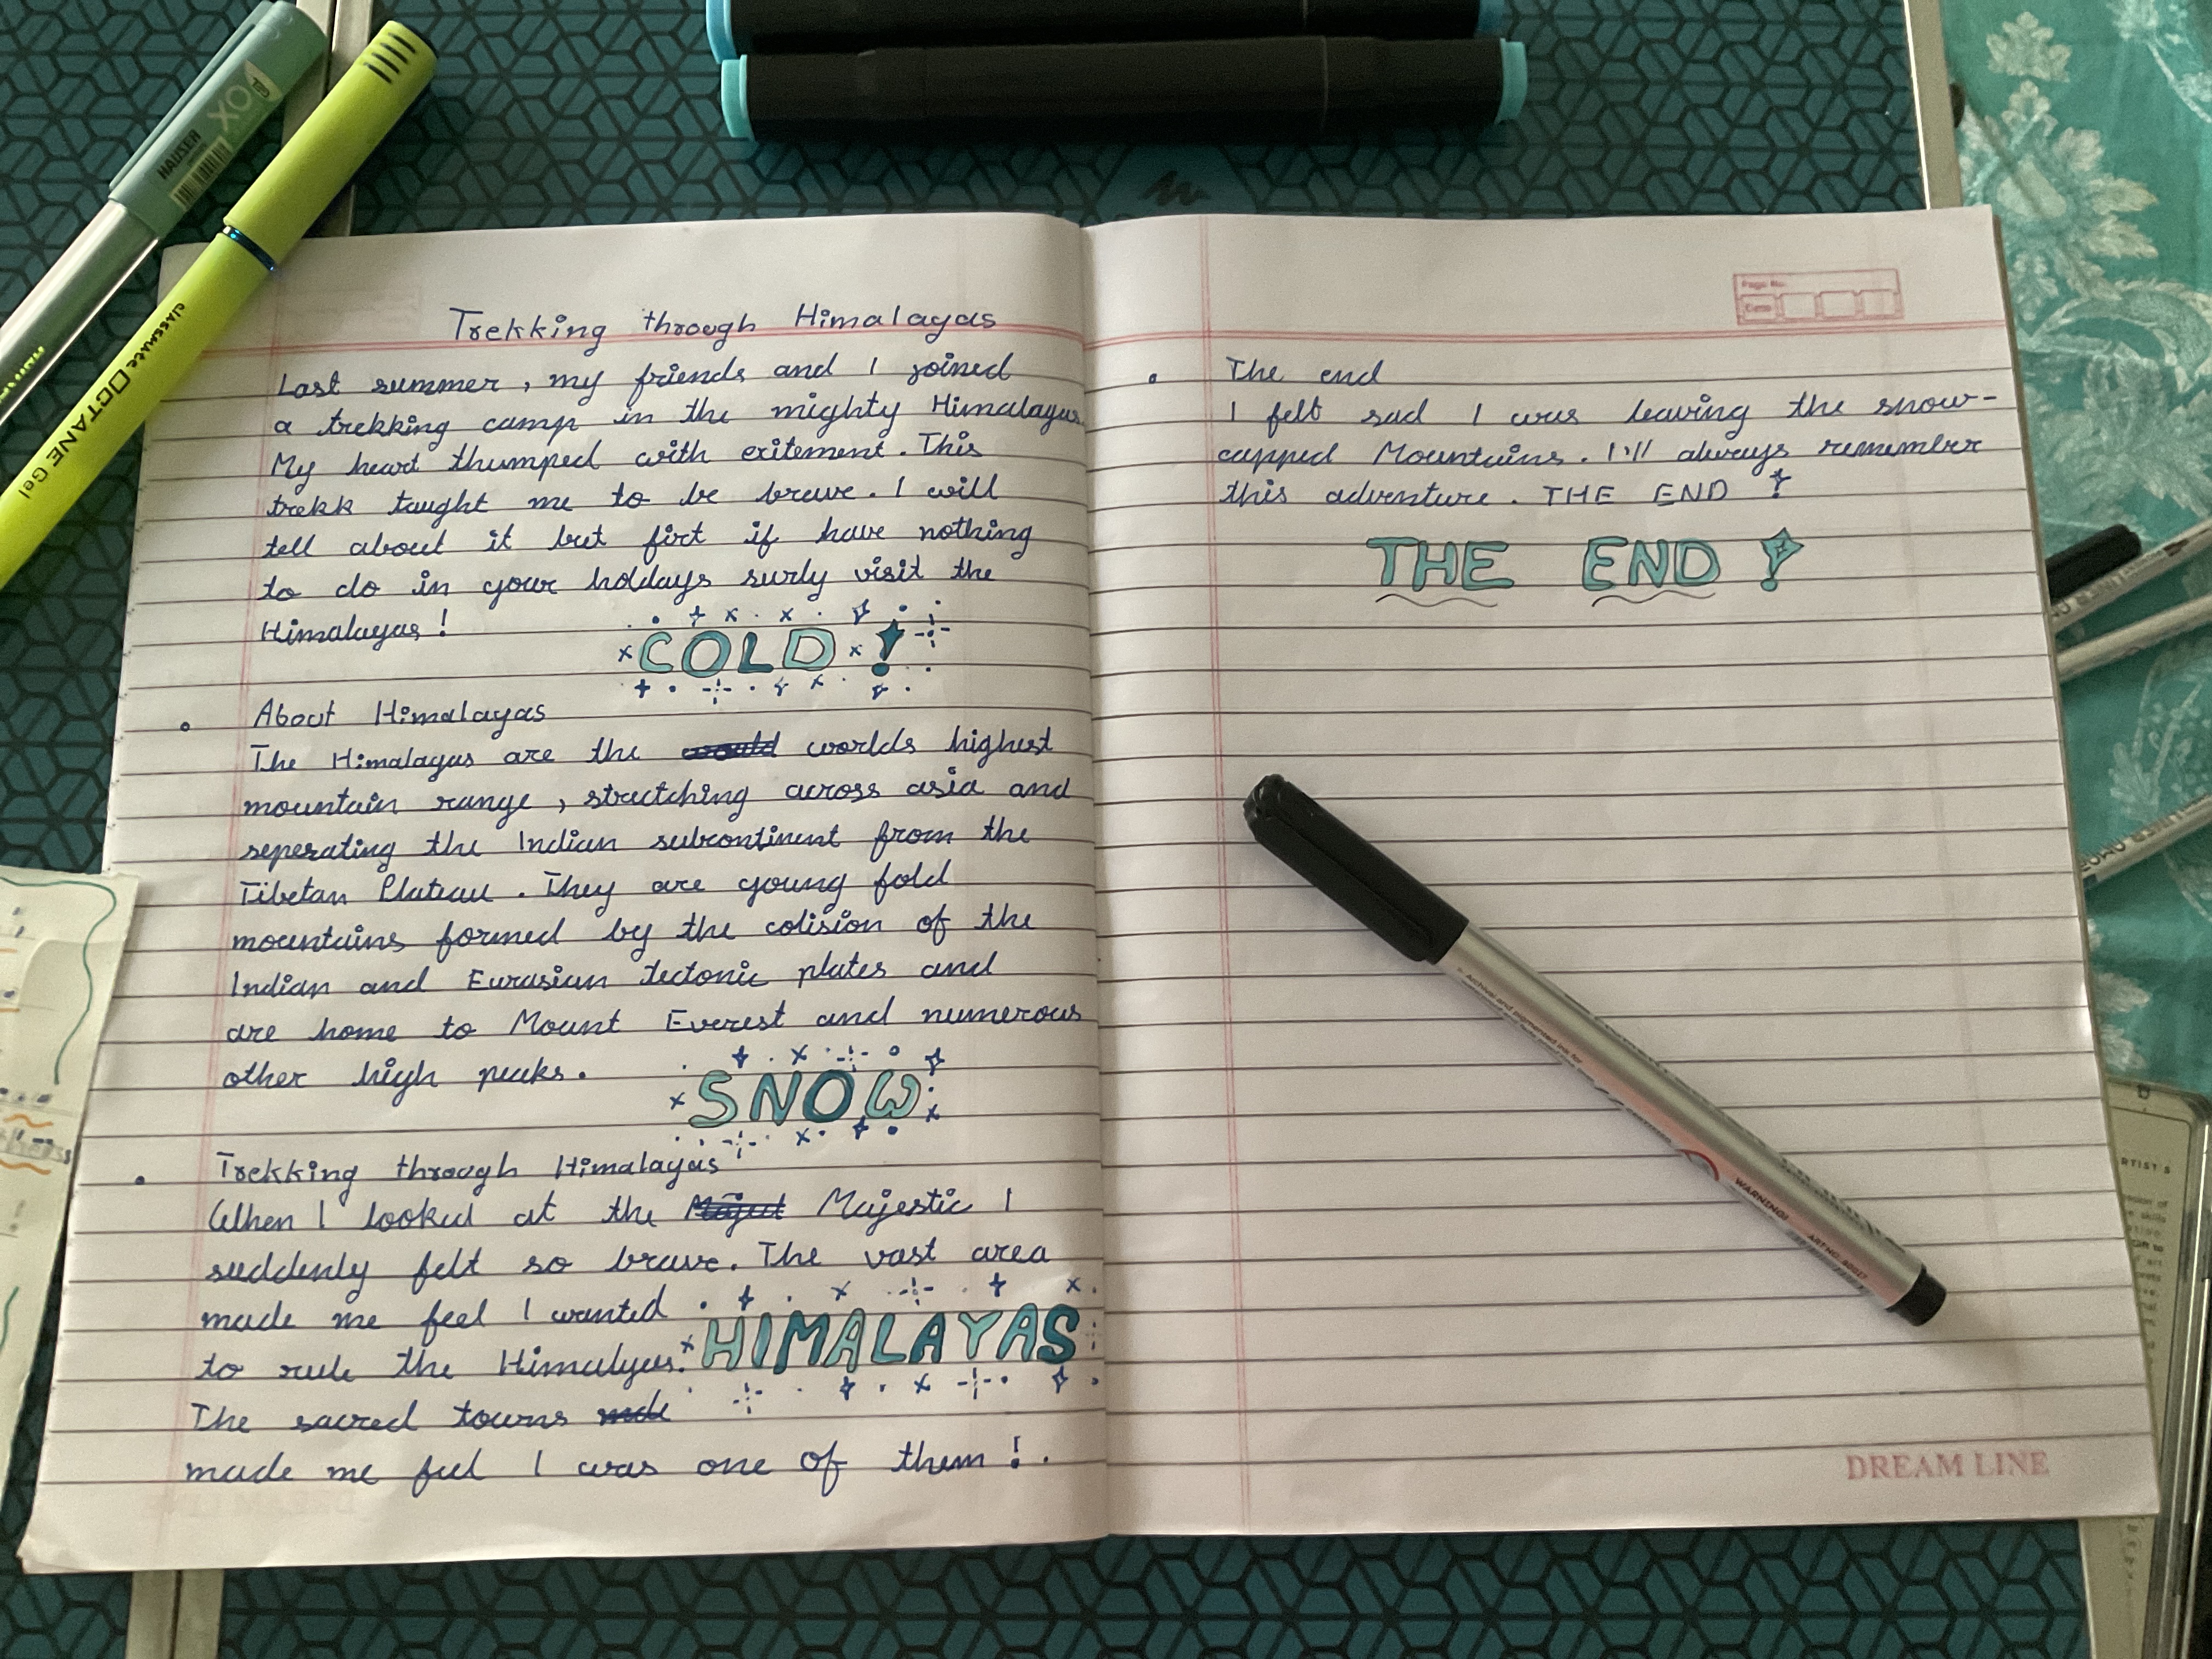 Trekking through Himalayas
Last summer, my friends and I joined
a trekking camp in the mighty Himalayas.
My heart thumped with exitement. This
trekk taught me to be brave. I will
tell about it but first if have nothing
to do in your holdays surly visit the
Himalayas!
COLD!
About Himalayas
The Himalayas are the worlds highest
mountain range, stretching across asia and
seperating the Indian subcontinent from the
Tibetan Plateau. They are young fold
mountains formed by the colision of the
Indian and Eurasian tectonic plates and
are home to Mount Everest and numerous
other high peaks.
SNOW
Trekking through Himalayas
When I looked at the Majestic I
suddenly felt so brave. The vast area
made me feel I wanted
to rule the Himalyas.
HIMALAYAS
The sacred towns
made me feel I was one of them!.
Page No.
Date
The end
I felt sad I was leaving the snow-
capped Mountains. I'll always remember
this adventure. THE END!
THE END!
DREAM LINE
HAUSER
XO
classmate OCTANE Gel
WARNING!
ARTIST'S